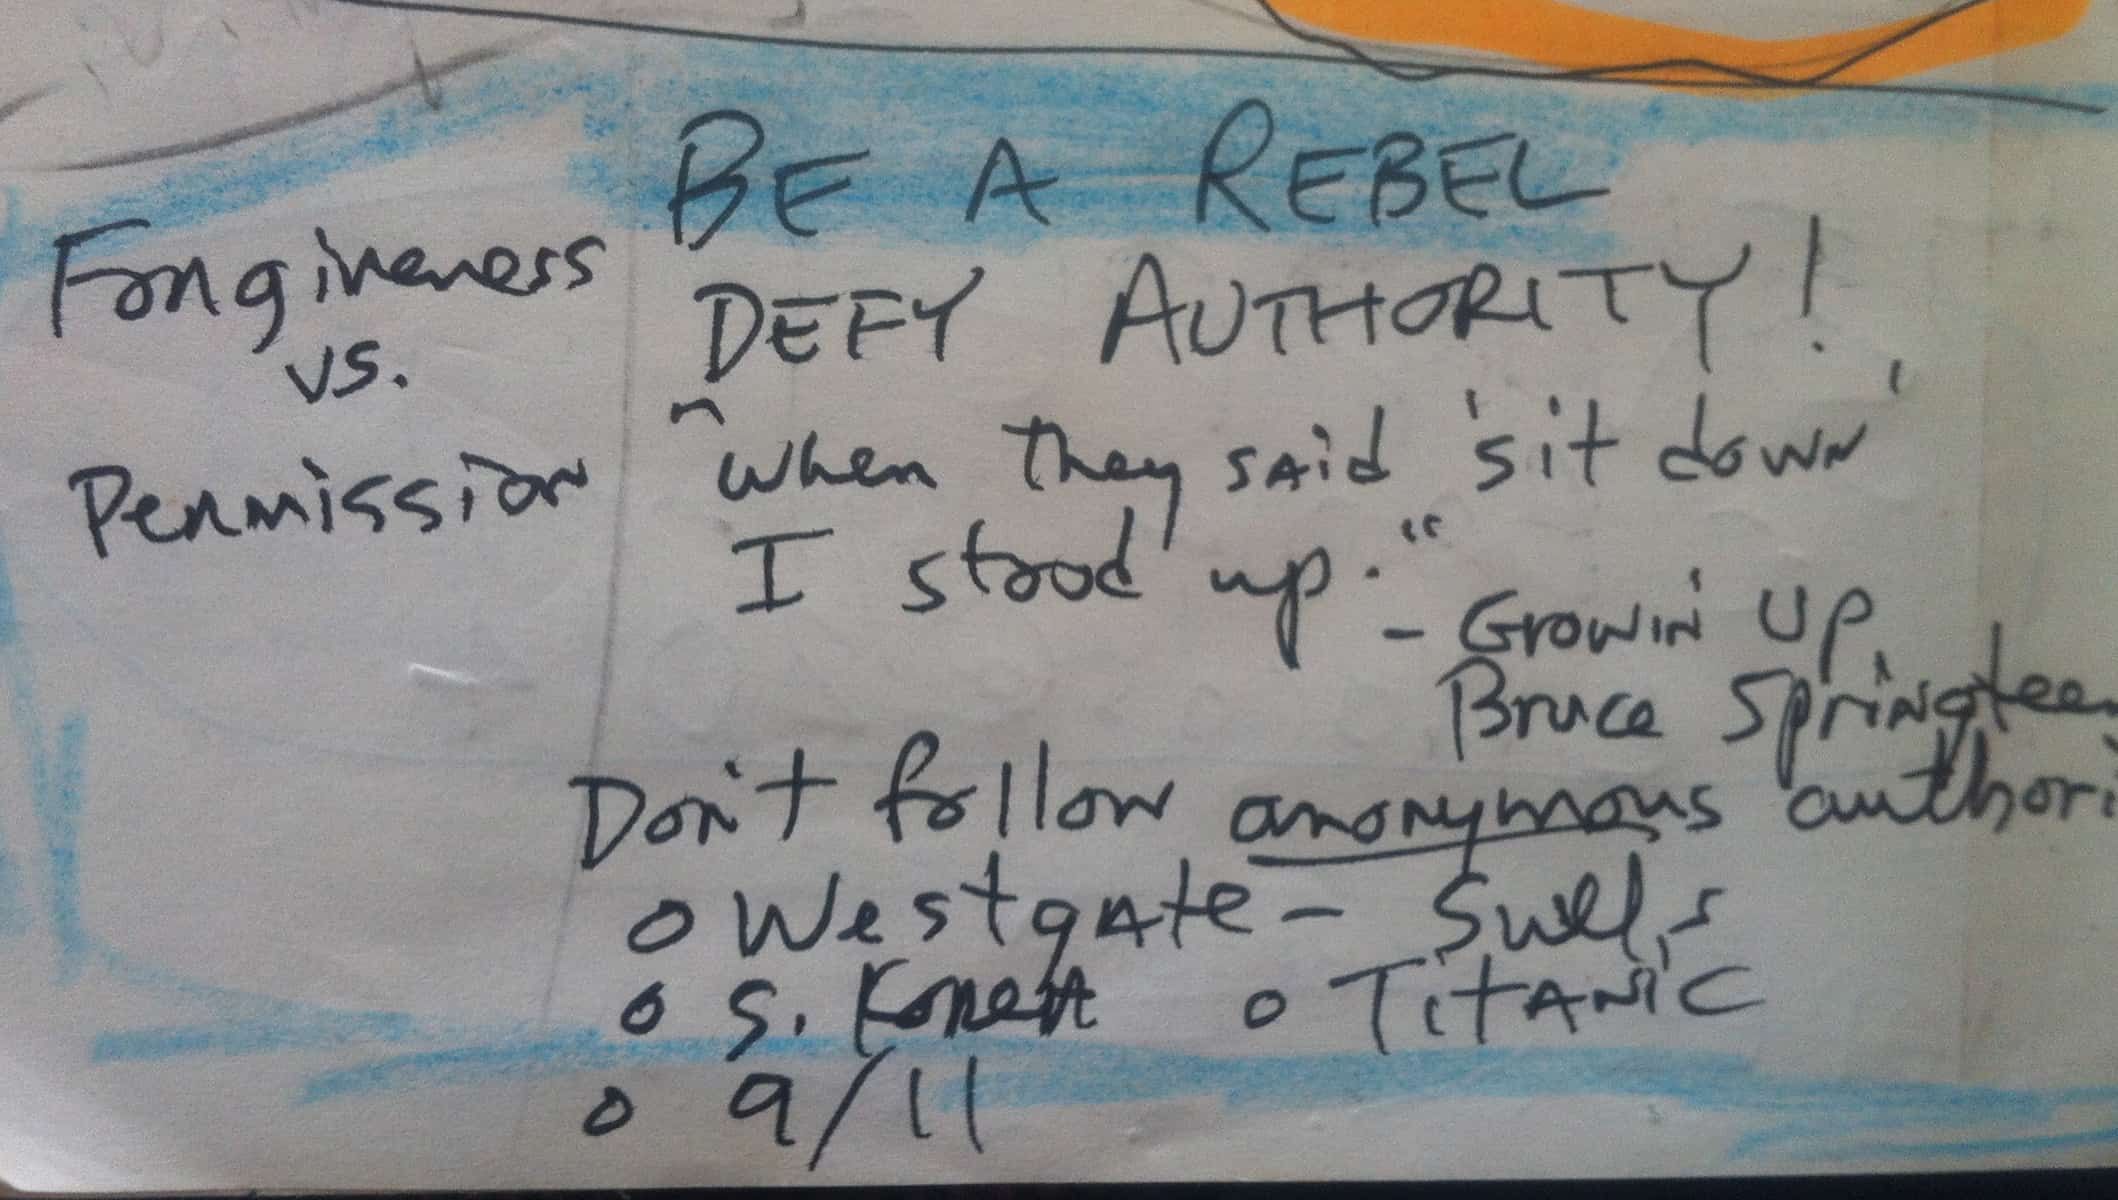 BE A REBEL
DEFY AUTHORITY!
Forgiveness
vs.
Permission
"when they said 'sit down'
I stood up."
- Growin' Up,
Bruce Springteen
Don't follow anonymous authori
o Westgate - Swells
o S. Korea o TITANIC
o 9/11